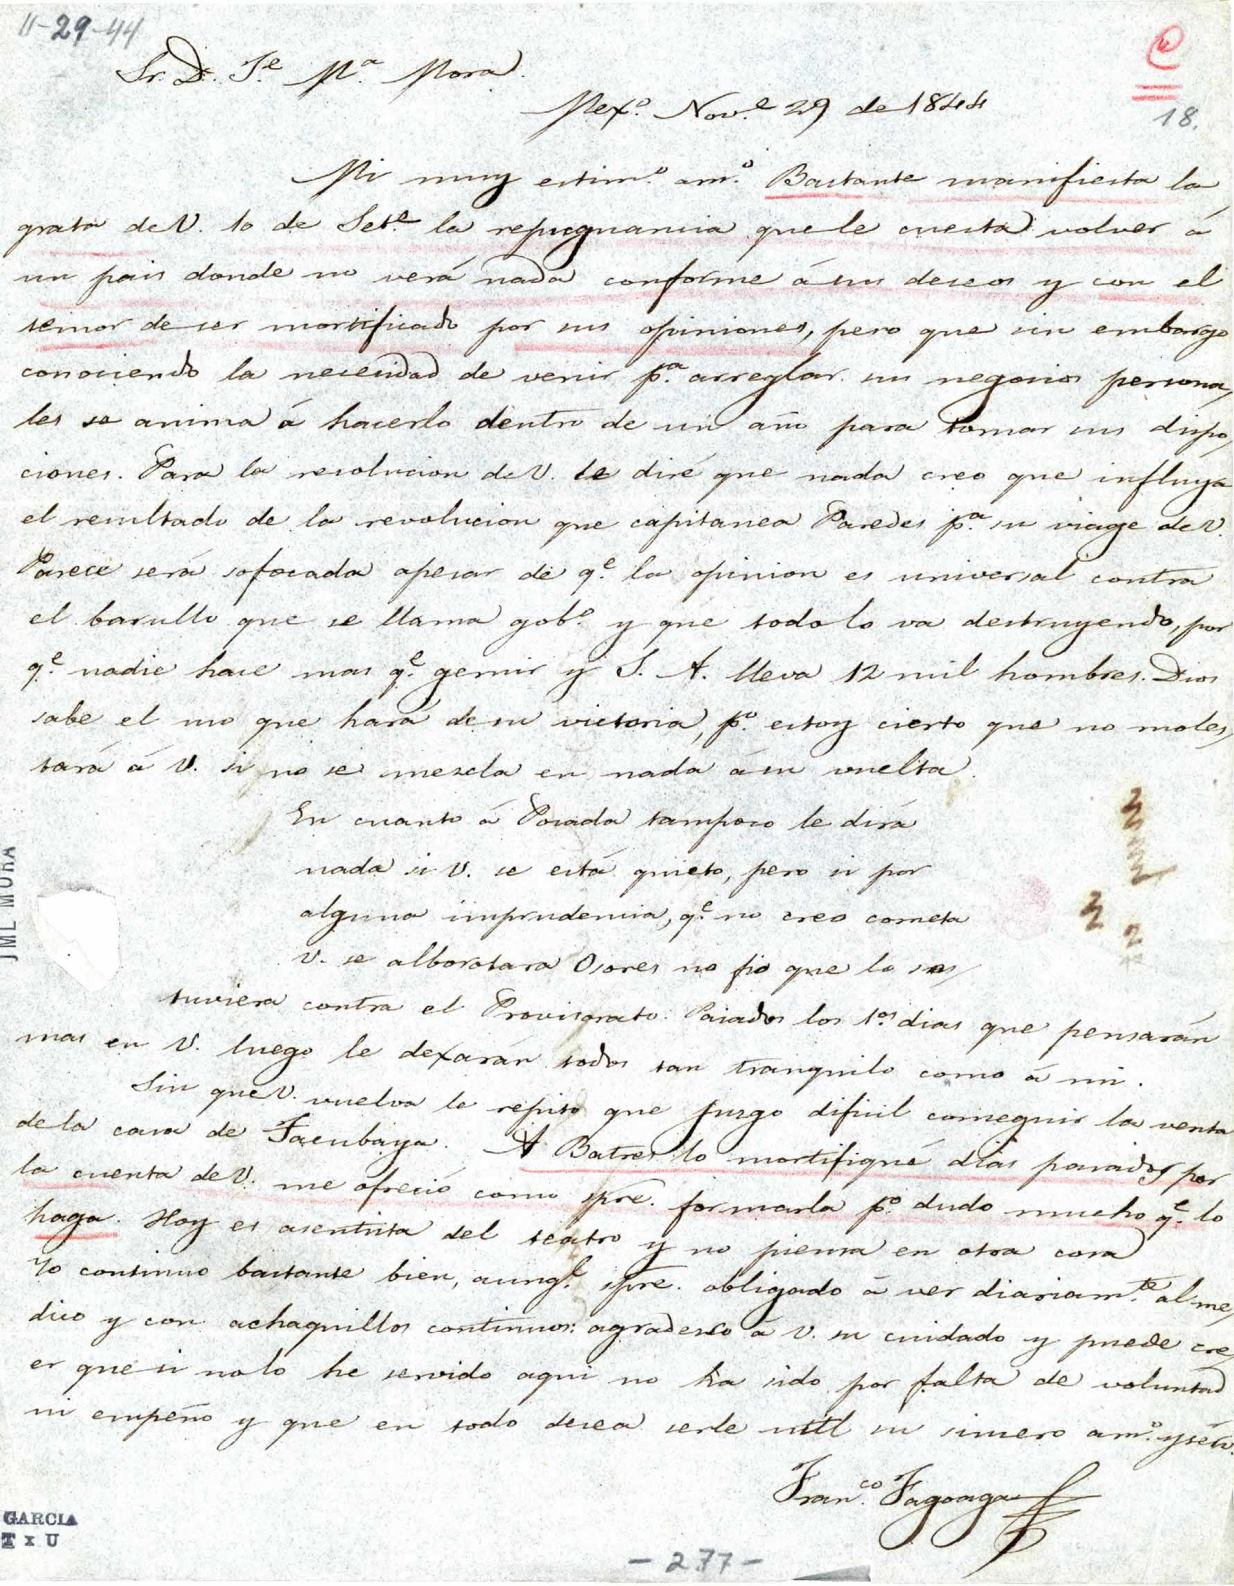 11-29-44
Sr. D. Je. Ma. Mora.
18.
Mexo. Nove. 29 de 1844
Mi muy estimo. amo. Bastante manifiesta la
grata de V. 10 de Sete. la repugnancia que le cuesta volver á
un pais donde no verá nada conforme á sus deseos y con el
temor de ser mortificado por sus opiniones, pero que sin embargo
conociendo la necesidad de venir pa. arreglar sus negocios persona,
les se anima á hacerlo dentro de un año para tomar sus dispo,
ciones. Para la resolucion de V. le diré que nada creo que influya
el resultado de la revolucion que capitanea Paredes pa. su viage de V.
Parece será sofocada apesar de qe. la opinion es universal contra
el barullo que se llama gobo. y que todo lo va destruyendo, por
qe. nadie hace mas qe. gemir y S. A. lleva 12 mil hombres. Dios
sabe el uso que hará de su victoria, po. estoy cierto que no moles,
tará á V. si no se mezcla en nada á su vuelta.
En cuanto á Posada tampoco le dirá
nada si V. se está quieto, pero si por
alguna imprudencia, qe. no creo cometa
V. se alborotara Osores no fio que lo sos,
tuviera contra el Provisorato. Pasados los 1os. dias que pensarán
mas en V. luego le dexarán todos tan tranquilo como á mi.
Sin que V. vuelva le repito que juzgo dificil conseguir la venta
de la casa de Tacubaya. A Batres lo mortifiqué dias pasados por
la cuenta de V. me ofreció como spre. formarla po. dudo mucho qe. lo
haga. Hoy es asentista del teatro y no piensa en otra cosa
Yo continuo bastante bien, aunqe. spre. obligado á ver diariamte. al me,
dico y con achaquillos continuos: agradesco á V. su cuidado y puede cre,
er que si no lo he servido aqui no ha sido por falta de voluntad
ni empeño y que en todo desea serle util su sincero amo. y serv.
Franco. Fagoaga
JML MORA
GARCIA
T x U
- 277 -